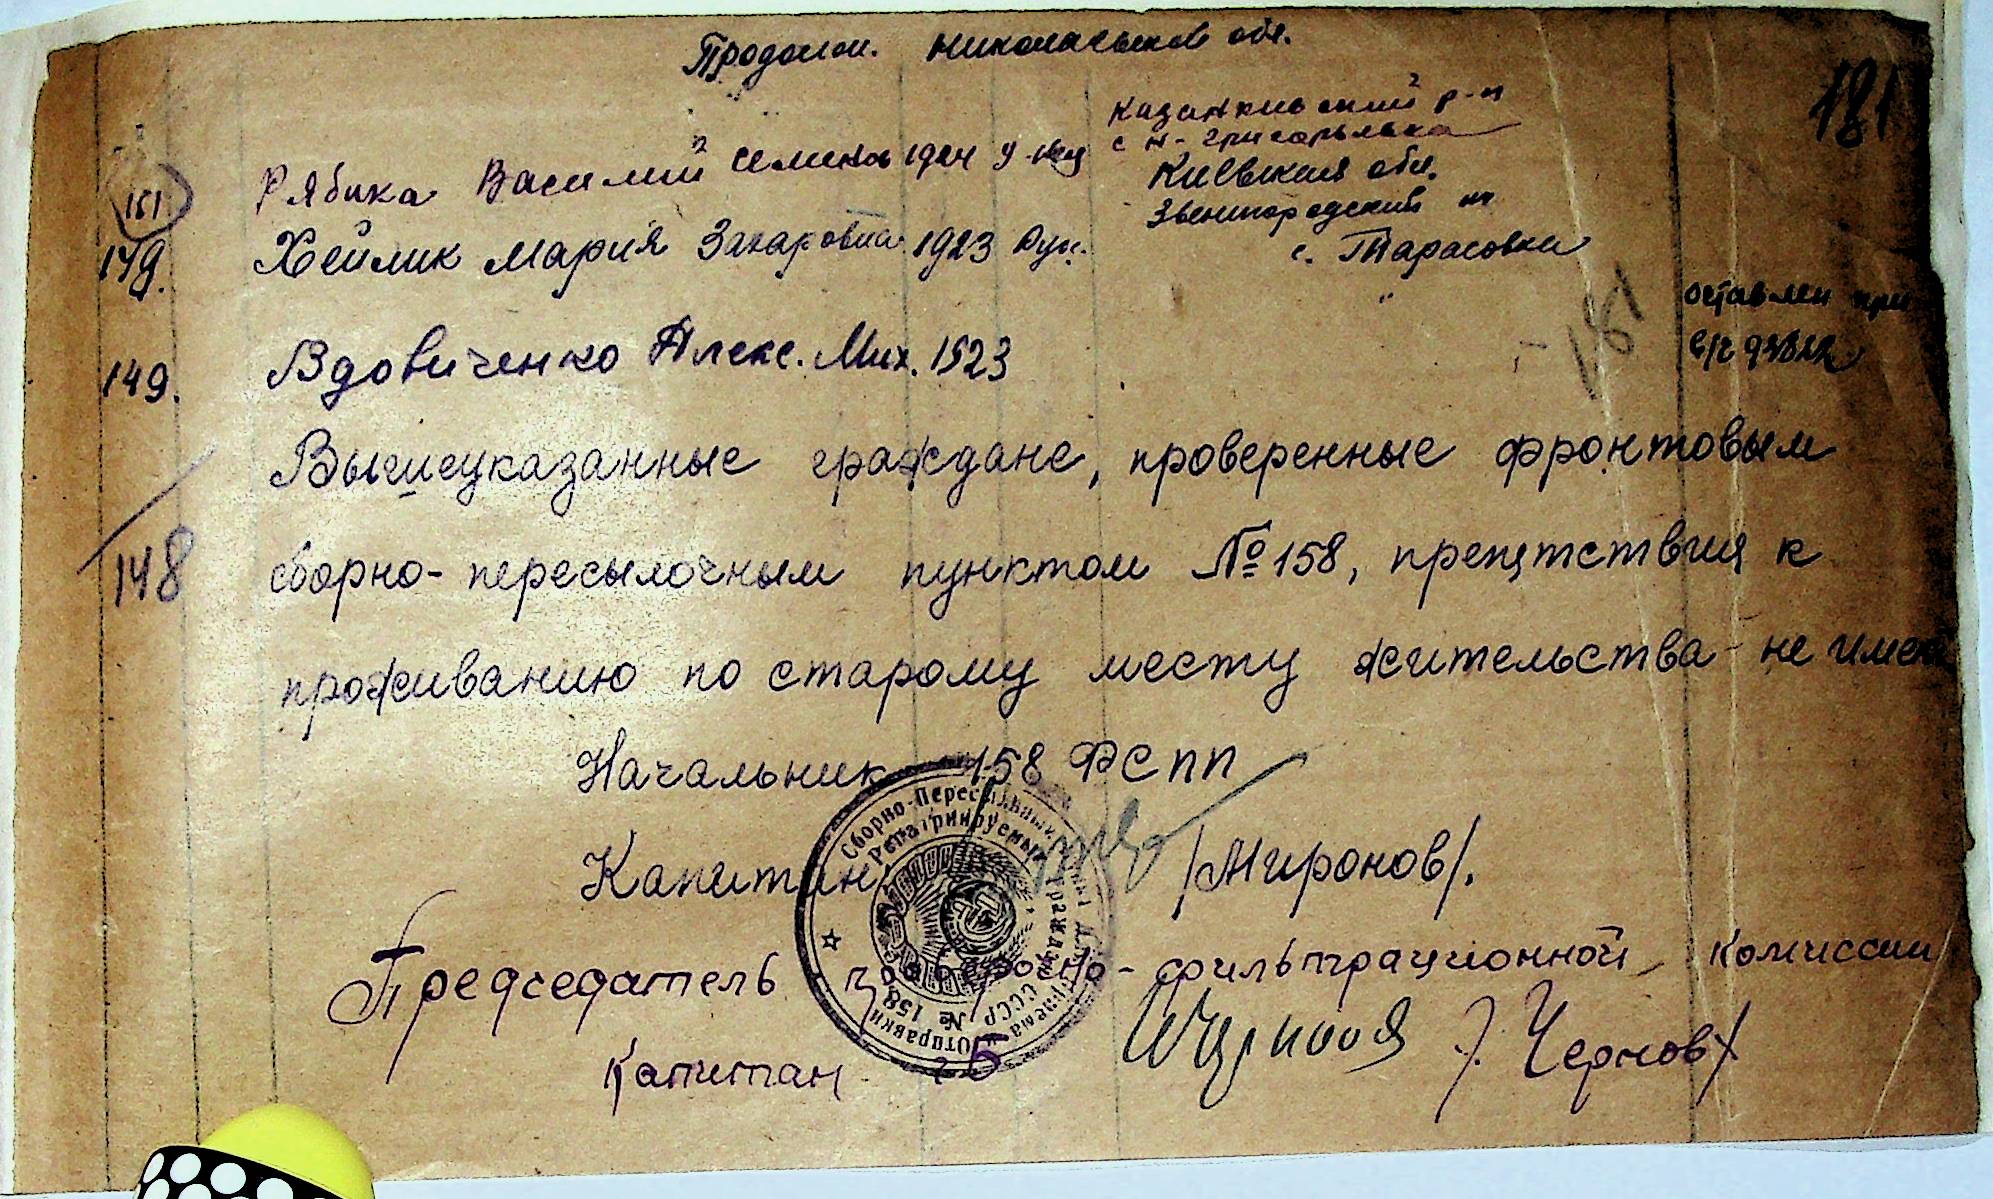 Продолж. Николаевской обл.
181
Казанкивский р-н
с Н-Григорьевка
151 Рябика Василий Семенов 1924 у-нец
Киевская обл.
Звенигородский
149. Хейлик Мария Захаровна 1923 рус.
с. Тарасовка
181
оставлен при
в/ч
149. Вдовиченко Алекс. Мих. 1923 "
Вышеуказанные граждане, проверенные фронтовым
148 сборно-пересылочным пунктом № 158, препятствия к
проживанию по старому месту жительства не имеют
Начальник 158 ФСПП
Капитан /Миронов/.
Председатель проверочно-фильтрационной комиссии
Капитан /Чернов/
Сборно-Пересыльный
Репатриируемых граждан СССР № 158
отправки